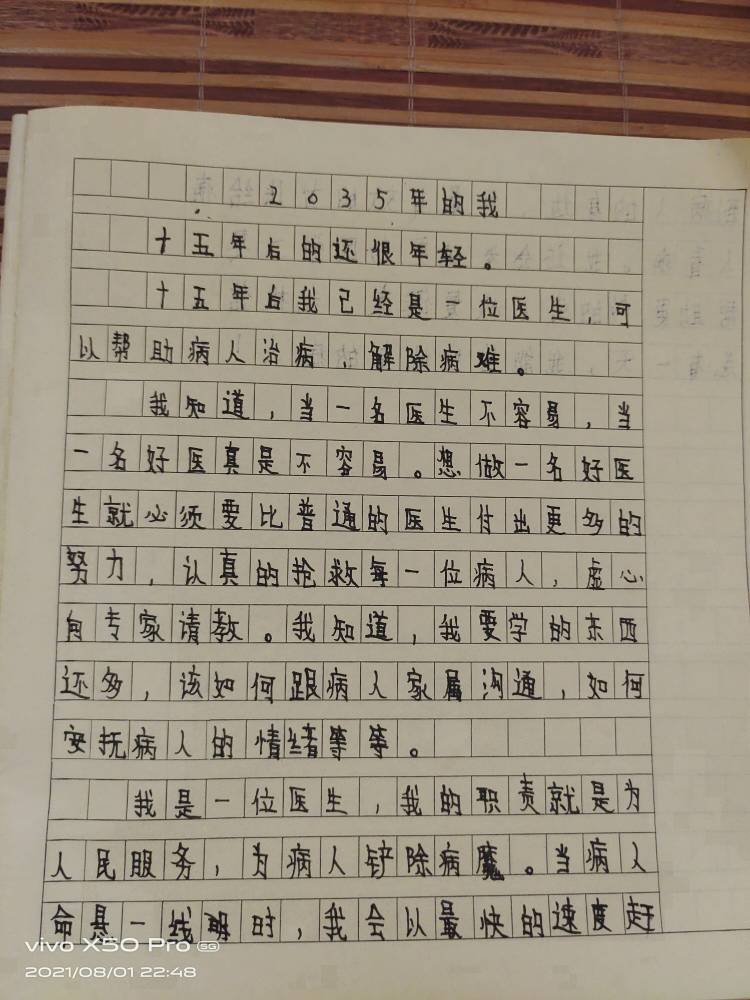 2035年的我
十五年后的还很年轻。
十五年后我已经是一位医生,可
以帮助病人治病,解除病难。
我知道,当一名医生不容易,当
一名好医真是不容易。想做一名好医
生就必须要比普通的医生付出更多的
努力,认真的抢救每一位病人,虚心
向专家请教。我知道,我要学的东西
还多,该如何跟病人家属沟通,如何
安抚病人的情绪等等。
我是一位医生,我的职责就是为
人民服务,为病人铲除病魔。当病人
命悬一线时,我会以最快的速度赶
vivo X50 Pro 5G
2021/08/01 22:48